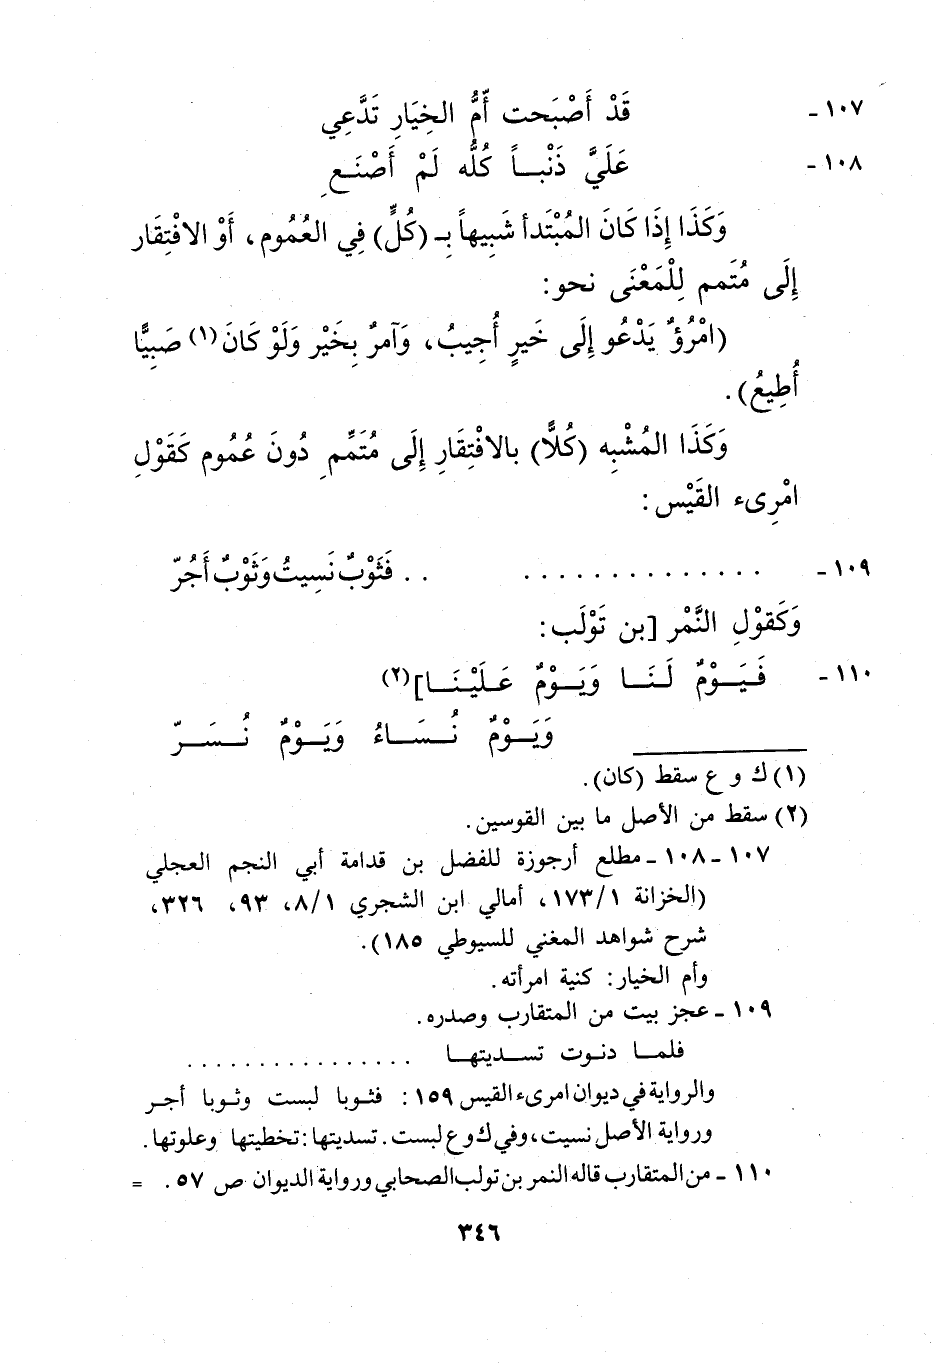 ١٠٧ - قَدْ أَصْبَحت أمُّ الخِيَارِ تَدَّعِي
١٠٨ - عَلَيَّ ذَنْباً كُلُّه لَمْ أَصْنَعِ
وَكَذَا إِذَا كَانَ المُبْتَدأ شَبِيهاً بـ (كُلٍّ) فِي العُمُومِ، أَوْ الافْتِقَار
إِلَى مُتَممٍ لِلْمَعْنَى نحو:
(امْرُؤٌ يَدْعُو إِلَى خَيرٍ أُجِيبُ، وَآمرٌ بِخَيْر وَلَوْ كَانَ(١) صَبِيًّا
أُطِيعُ).
وَكَذَا المُشْبِه (كُلًّا) بالافْتِقَارِ إِلَى مُتَمِّمٍ دُونَ عُمُومٍ كَقَوْلِ
امْرِىء القَيْسِ:
١٠٩ - .............. .. فَثَوْبٌ نَسِيتُ وَثَوْبٌ أَجُرّ
وَكَقوْلِ النَّمْر [بن تَوْلَب:
١١٠ - فَيَوْمٌ لَنَا وَيَوْمٌ عَلَيْنَا](٢)
وَيَوْمٌ نُسَاءُ وَيَوْمٌ نُسَرّ
(١) ك و ع سقط (كان).
(٢) سقط من الأصل ما بين القوسين.
١٠٧ - ١٠٨ - مطلع أرجوزة للفضل بن قدامة أبي النجم العجلي
(الخزانة ١٧٣/١، أمالي ابن الشجري ٨/١، ٩٣، ٣٢٦،
شرح شواهد المغني للسيوطي ١٨٥).
وأم الخيار: كنية امرأته.
١٠٩ - عجز بيت من المتقارب وصدره.
فلما دنوت تسديتها ...............
والرواية في ديوان امرىء القيس ١٥٩: فثوبا لبست وثوبا أجر
ورواية الأصل نسيت، وفي ك و ع لبست. تسديتها: تخطيتها وعلوتها.
١١٠ - من المتقارب قاله النمر بن تولب الصحابي ورواية الديوان ص ٥٧. =
٣٤٦